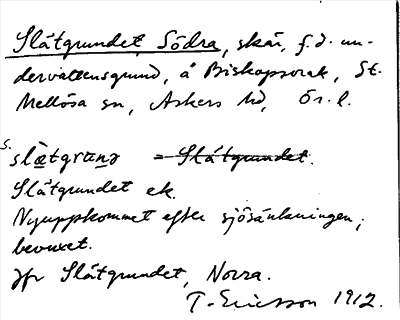 Slätgrundet, Södra, skär, f.d. un-
dervattensgrund, å Biskopsorak, St.
Mellösa sn, Askers hd, Ör. l.
S. slætgrund = Slätgrundet.
Slätgrundet ek.
Nyuppkommet efter sjösänkningen;
bevuxet.
Jfr Slätgrundet, Norra.
T. Ericsson 1912.